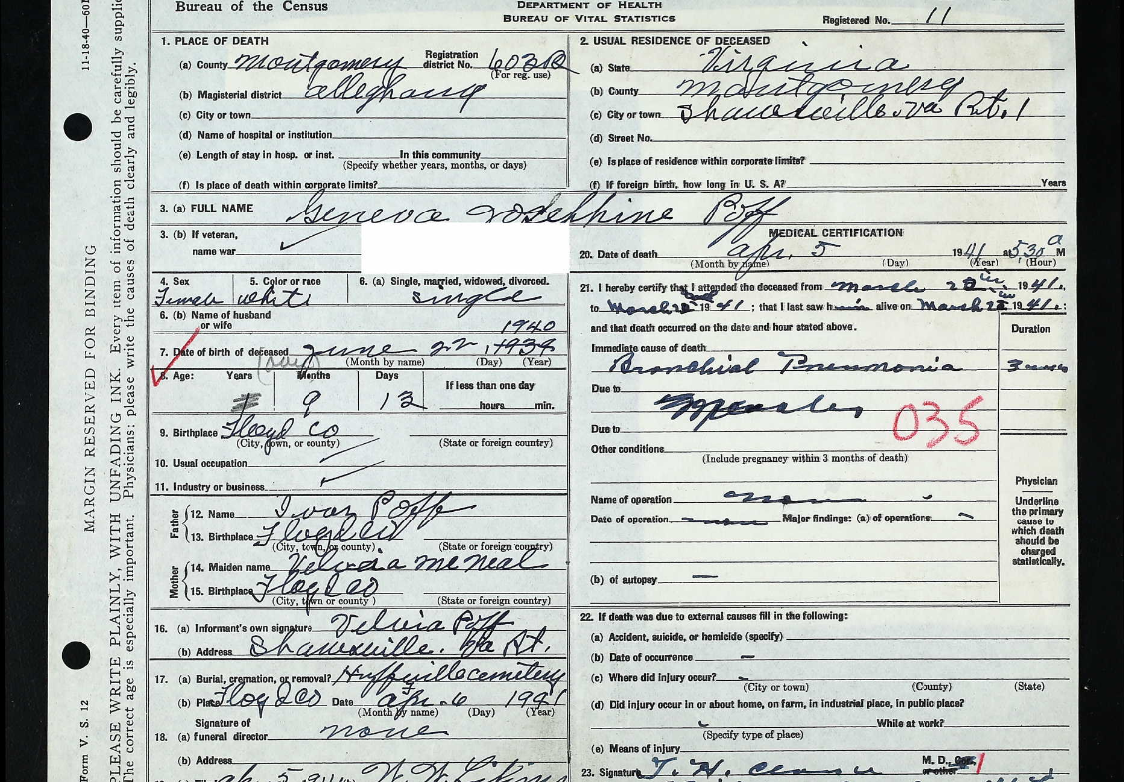 Bureau of the Census
DEPARTMENT OF HEALTH
BUREAU OF VITAL STATISTICS
Registered No. 11
11-18-40
MARGIN RESERVED FOR BINDING
PLEASE WRITE PLAINLY, WITH UNFADING INK. Every item of information should be carefully supplie
The correct age is especially important. Physicians: please write the causes of death clearly and legibly.
Form V. S. 12
1. PLACE OF DEATH
(a) County Montgomery Registration district No.
(For reg. use)
(b) Magisterial district Alleghany
(c) City or town
(d) Name of hospital or institution
(e) Length of stay in hosp. or inst. In this community
(Specify whether years, months, or days)
(f) Is place of death within corporate limits?
2. USUAL RESIDENCE OF DECEASED
(a) State Virginia
(b) County Montgomery
(c) City or town Shawsville Va Rt. 1
(d) Street No.
(e) Is place of residence within corporate limits?
(f) If foreign birth, how long in U. S. A? Years
3. (a) FULL NAME Geneva Josephine Poff
3. (b) If veteran,
name war
4. Sex Female
5. Color or race white
6. (a) Single, married, widowed, divorced. single
6. (b) Name of husband
or wife
1940
7. Date of birth of deceased June 22, 1939
(Month by name) (Day) (Year)
8. Age: Years Months Days If less than one day
9 13 hours min.
9. Birthplace Floyd Co
(City, town, or county) (State or foreign country)
10. Usual occupation
11. Industry or business
Father
12. Name Ivan Poff
13. Birthplace Floyd Co
(City, town, or county) (State or foreign country)
Mother
14. Maiden name Velvia McNeal
15. Birthplace Floyd Co
(City, town or county) (State or foreign country)
16. (a) Informant's own signature Velvia Poff
(b) Address Shawsville. Va Rt.
17. (a) Burial, cremation, or removal? Huffville cemetery
(b) Place Floyd Co Date Apr. 6 1941
(Month by name) (Day) (Year)
Signature of
18. (a) funeral director none
(b) Address
MEDICAL CERTIFICATION
20. Date of death Apr. 5 1941 at 5:30 a M
(Month by name) (Day) (Year) (Hour)
21. I hereby certify that I attended the deceased from March 1941,
to March 1941; that I last saw h alive on March 1941.;
and that death occurred on the date and hour stated above.
Duration
Immediate cause of death
Bronchial Pneumonia 3
Due to
Measles
Due to
035
Other conditions
(Include pregnancy within 3 months of death)
Name of operation none
Date of operation none Major findings: (a) of operations
(b) of autopsy
Physician
Underline
the primary
cause to
which death
should be
charged
statistically.
22. If death was due to external causes fill in the following:
(a) Accident, suicide, or homicide (specify)
(b) Date of occurrence
(c) Where did injury occur?
(City or town) (County) (State)
(d) Did injury occur in or about home, on farm, in industrial place, in public place?
While at work?
(Specify type of place)
(e) Means of injury
M. D.,
or other
23. Signature J. H.